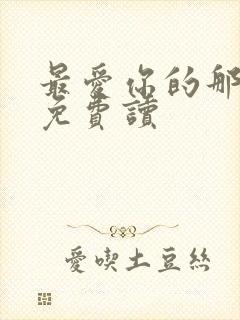 最愛你的那
免費讀
愛喫土豆絲